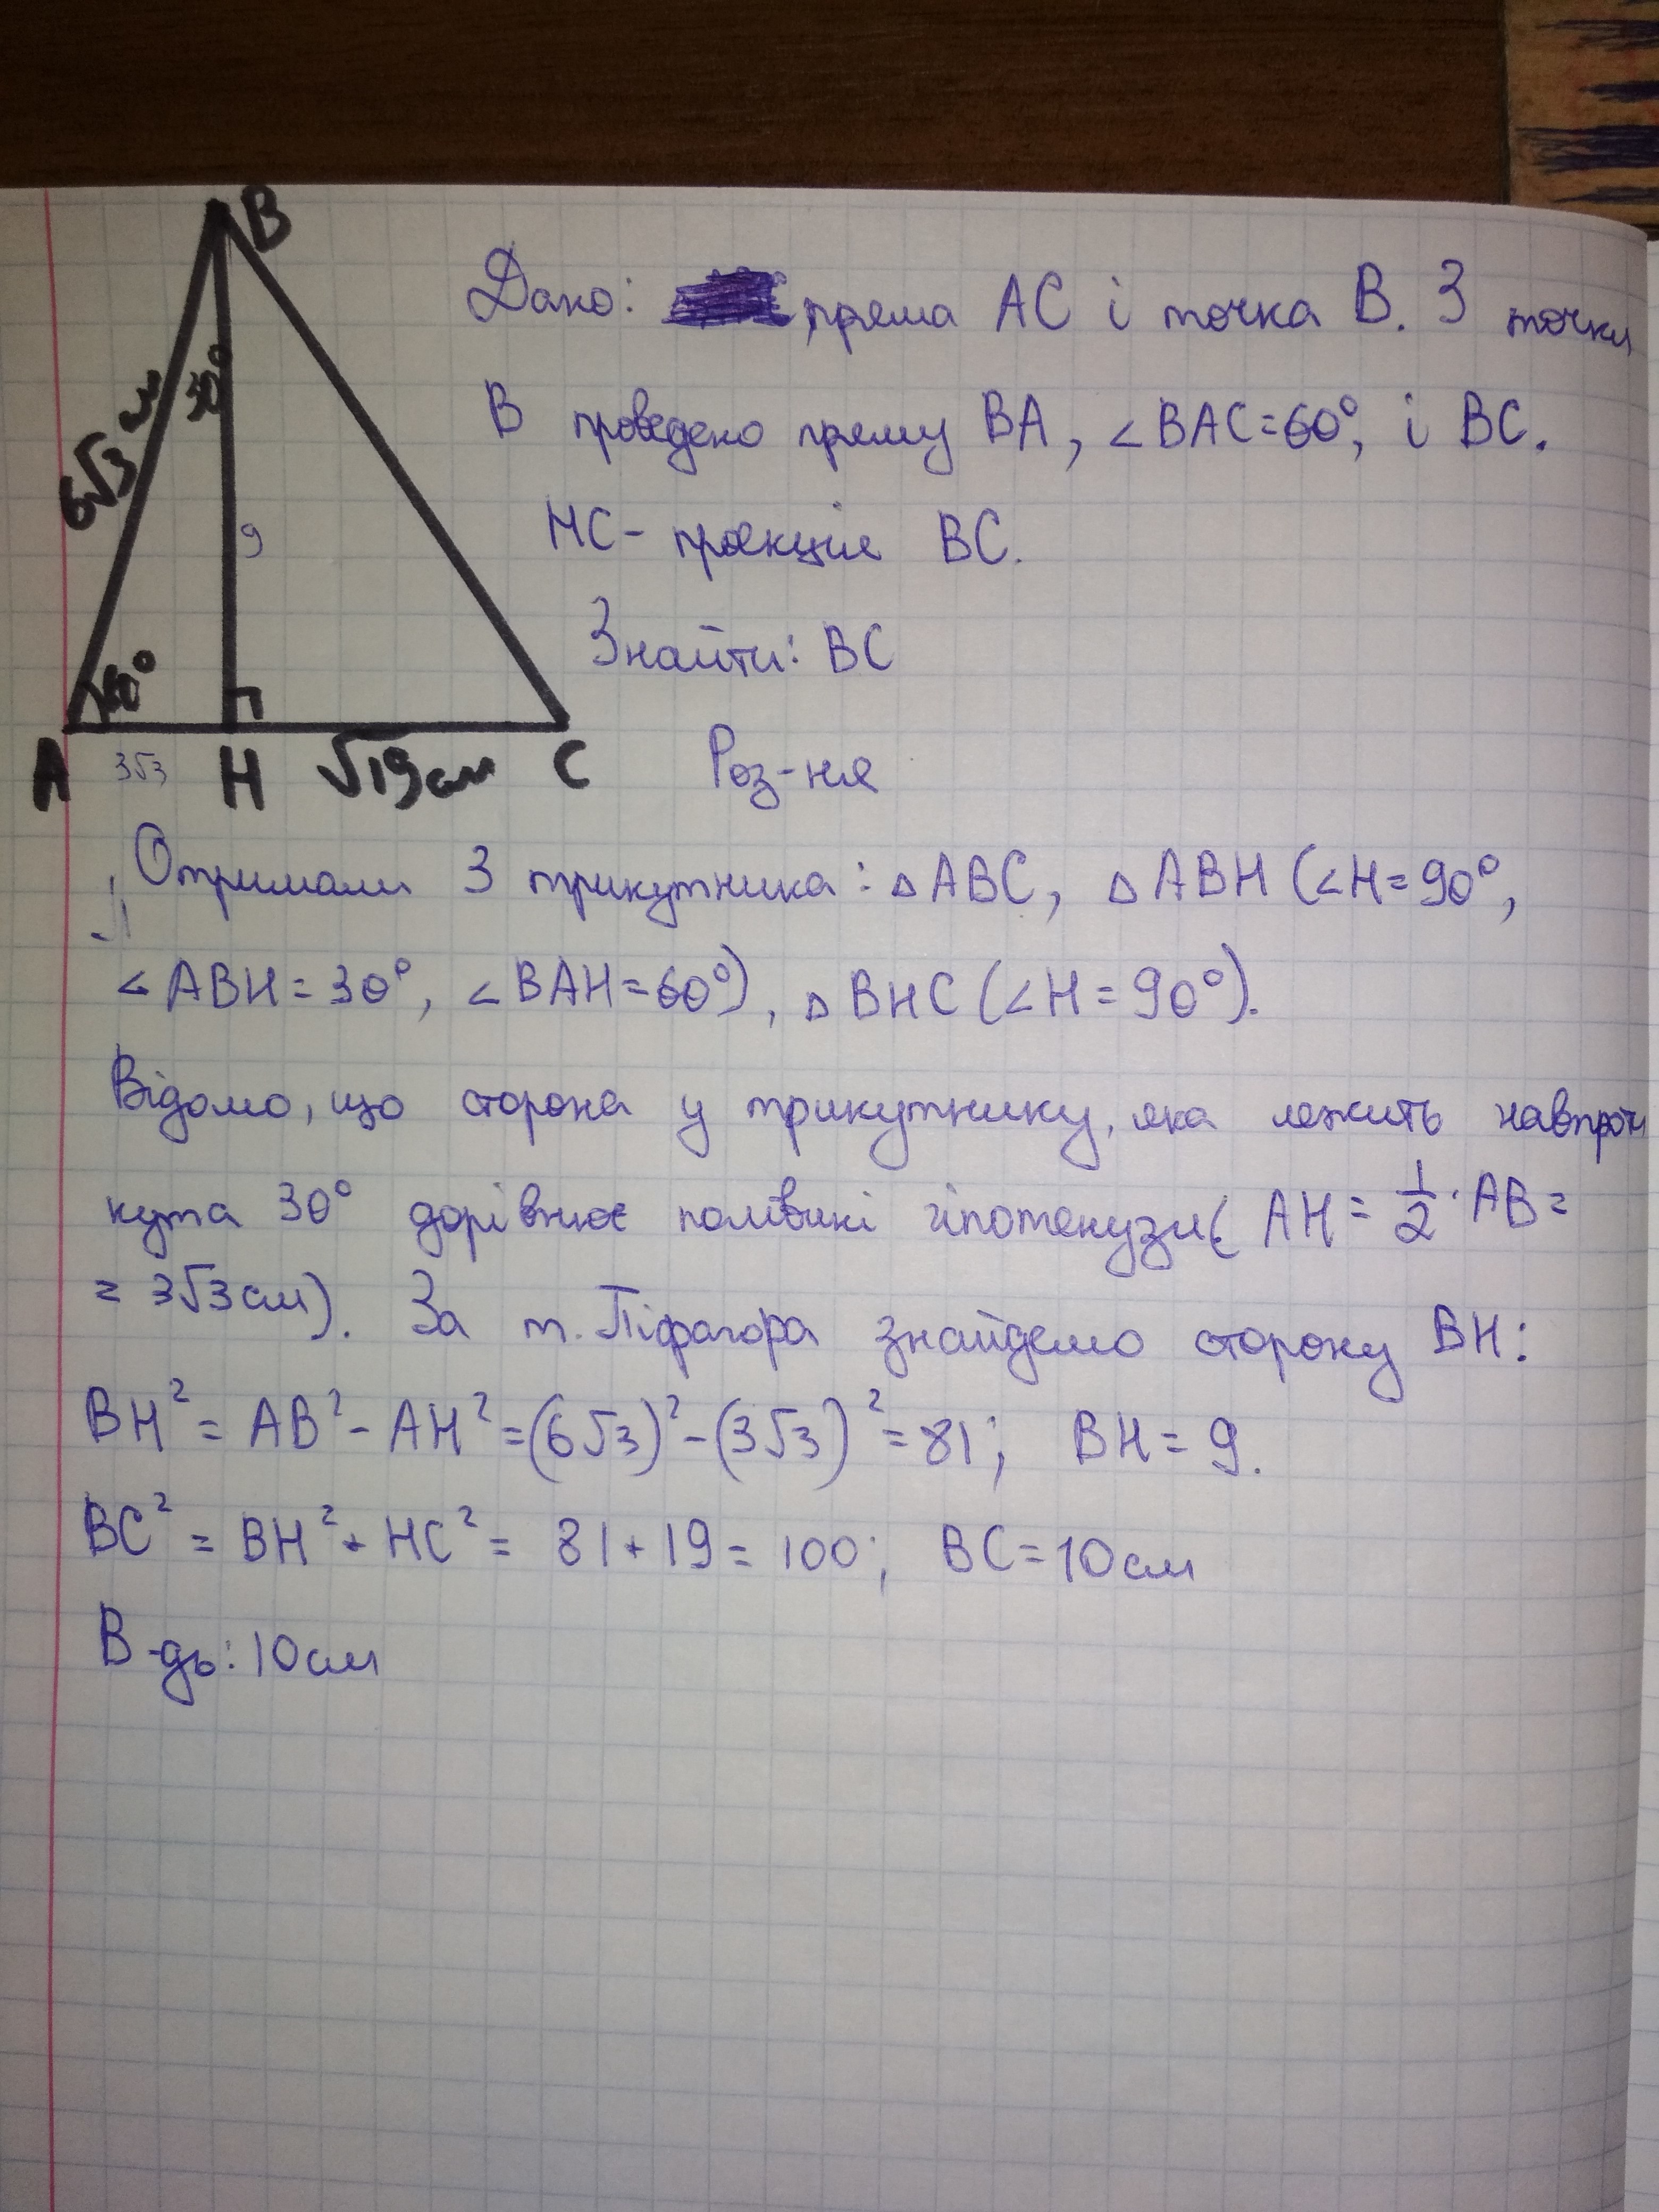 B
6√3 см
30°
9
60°
A 3√3 H √19 см C
Дано: пряма AC і точка B. З точки
B проведено пряму BA, ∠BAC=60°, і BC.
HC - проекція BC.
Знайти: BC
Роз-ня
Отримали 3 трикутника: △ABC, △ABH (∠H=90°,
∠ABH=30°, ∠BAH=60°), △BHC (∠H=90°).
Відомо, що сторона у трикутнику, яка лежить навпроти
кута 30° дорівнює половині гіпотенузи (AH = 1/2 · AB =
= 3√3 см). За т. Піфагора знайдемо сторону BH:
BH² = AB² - AH² = (6√3)² - (3√3)² = 81; BH = 9.
BC² = BH² + HC² = 81 + 19 = 100; BC = 10 см
В-дь: 10 см